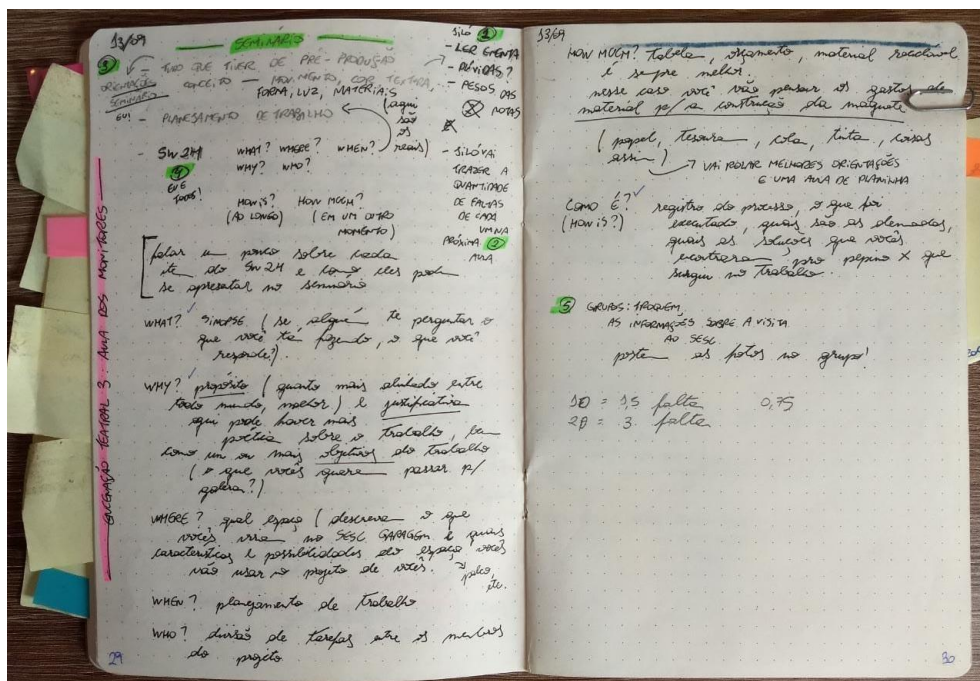 13/09
SEMINÁRIO
3
ORIENTAÇÕES
SEMINÁRIO
- TUDO QUE TIVER DE PRÉ-PRODUÇÃO
CONCEITO - MOVIMENTO, COR, TEXTURA,
FORMA, LUZ, MATERIAIS
(aqui
são
os
reais)
- PLANEJAMENTO DE TRABALHO
- 5W2H
4
WHAT? WHERE? WHEN?
WHY? WHO?
HOW IS? HOW MUCH?
(AO LONGO) (EM UM OUTRO
MOMENTO)
1
- LER EMENTA
- DÚVIDAS?
- PESOS DAS
NOTAS
- SILÓ VAI
TRAZER A
QUANTIDADE
DE FALTAS
DE CADA
UM NA
PRÓXIMA 2
AULA
falar um pouco sobre cada
item do 5W2H e como eles podem
se apresentar no seminário
WHAT? SINOPSE (se alguém te perguntar o
que você tá fazendo, o que você
responde?)
WHY? propósito (quanto mais alinhado entre
todo mundo, melhor) e justificativa
aqui pode haver mais
poética sobre o trabalho, bem
como um ou mais objetivos do trabalho
(o que vocês querem passar p/
galera?)
WHERE? qual espaço (descrevam o que
vocês viram no SESC GARAGEM e quais
características e possibilidades do espaço vocês
vão usar no projeto de vocês.
palco,
etc.
WHEN? planejamento de trabalho
WHO? divisão de tarefas entre os membros
do projeto
29
ENCENAÇÃO TEATRAL 3: AULA DOS MONITORES
13/09
HOW MUCH? tabela, orçamento, material reciclável
é sempre melhor.
nesse caso vocês vão pensar os gastos de
material p/ a construção da maquete
(papel, tesoura, cola, tinta, coisas
assim)
VAI ROLAR MELHORES ORIENTAÇÕES
E UMA AULA DE PLANINHA
COMO É? registro do processo, o que foi
(HOW IS?) executado, quais são as demandas,
quais as soluções que vocês
encontraram pro pepino X que
surgiu no trabalho.
5 GRUPOS: TROQUEM
AS INFORMAÇÕES SOBRE A VISITA
AO SESC
postem as fotos no grupo!
10 = 1,5 falta 0,75
20 = 3 falta
30